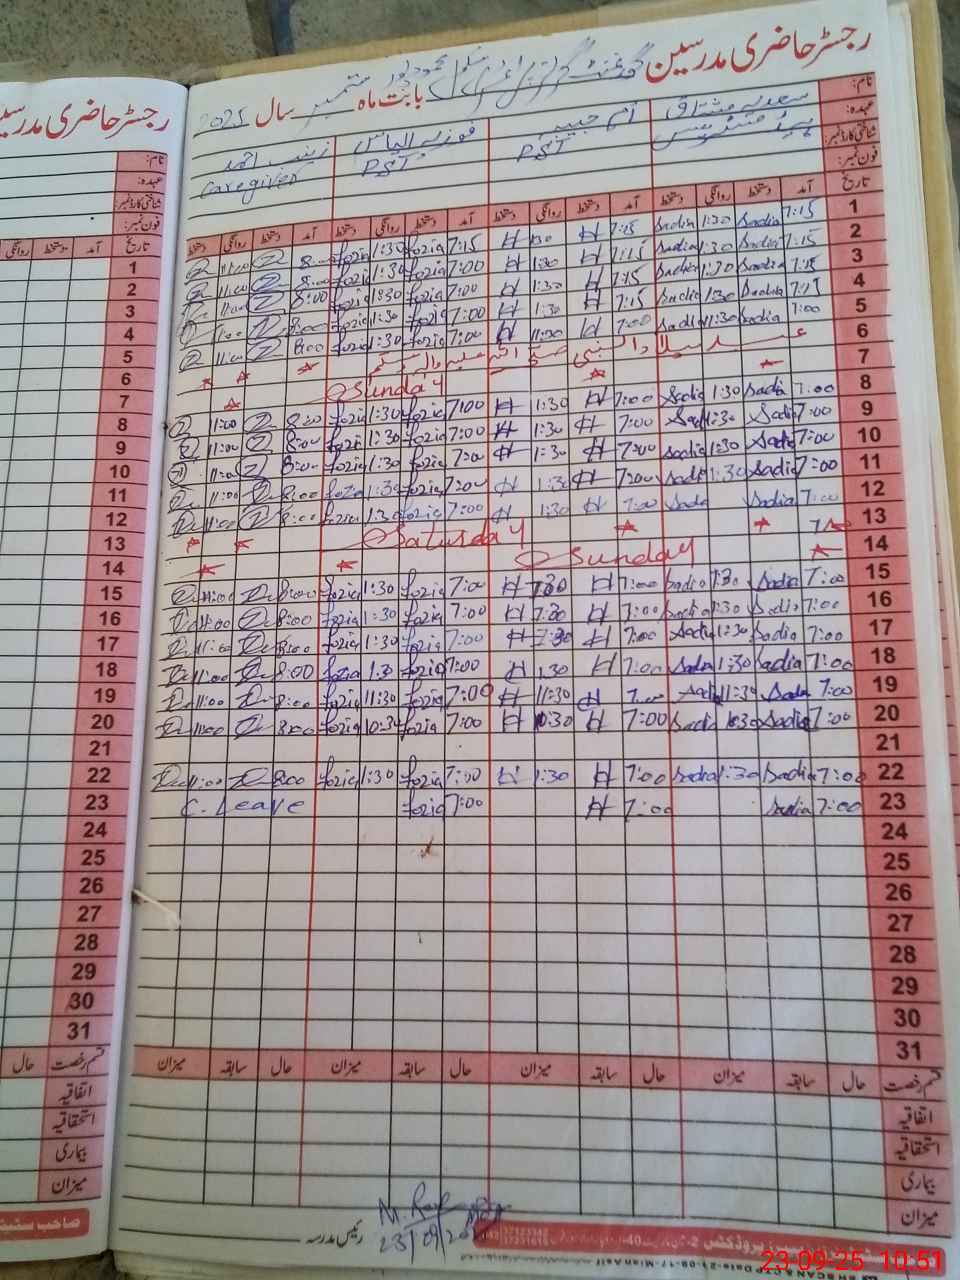 رجسٹر حاضری مدرسین گورنمنٹ گرلز پرائمری سکول محمود پور بابت ماہ ستمبر سال 2025
نام: سعدیہ مشتاق ام حبیبہ فوزیہ الیاس زینب احمد
عہدہ: ہیڈ مسٹریس PST PST Caregiver
شناختی کارڈ نمبر:
فون نمبر:
تاریخ آمد دستخط روانگی دستخط آمد دستخط روانگی دستخط آمد دستخط روانگی دستخط آمد دستخط روانگی دستخط
1 7:15 Sadia 1:30 Sadia 7:15 H 1:30 H 7:15 fozia 1:30 fozia 8:00 Z 11:00 Z
2 7:15 Sadia 1:30 Sadia 7:15 H 1:30 H 7:00 fozia 1:30 fozia 8:00 Z 11:00 Z
3 7:15 Sadia 1:30 Sadia 7:15 H 1:30 H 7:00 fozia 1:30 fozia 8:00 Z 11:00 Z
4 7:15 Sadia 1:30 Sadia 7:15 H 1:30 H 7:00 fozia 1:30 fozia 8:00 Z 11:00 Z
5 7:00 Sadia 11:30 Sadia 7:00 H 11:30 H 7:00 fozia 1:30 fozia 8:00 Z 11:00 Z
6 عید میلاد النبی صلی اللہ علیہ والہ وسلم
7 Sunday
8 7:00 Sadia 1:30 Sadia 7:00 H 1:30 H 7:00 fozia 1:30 fozia 8:00 Z 11:00 Z
9 7:00 Sadia 1:30 Sadia 7:00 H 1:30 H 7:00 fozia 1:30 fozia 8:00 Z 11:00 Z
10 7:00 Sadia 1:30 Sadia 7:00 H 1:30 H 7:00 fozia 1:30 fozia 8:00 Z 11:00 Z
11 7:00 Sadia 1:30 Sadia 7:00 H 1:30 H 7:00 fozia 1:30 fozia 8:00 Z 11:00 Z
12 7:00 Sadia Sadia 7:00 H 1:30 H 7:00 fozia 1:30 fozia 8:00 Z 11:00 Z
13 Saturday
14 Sunday
15 7:00 Sadia 1:30 Sadia 7:00 H 1:30 H 7:00 fozia 1:30 fozia 8:00 Z 11:00 Z
16 7:00 Sadia 1:30 Sadia 7:00 H 1:30 H 7:00 fozia 1:30 fozia 8:00 Z 11:00 Z
17 7:00 Sadia 1:30 Sadia 7:00 H 1:30 H 7:00 fozia 1:30 fozia 8:00 Z 11:00 Z
18 7:00 Sadia 1:30 Sadia 7:00 H 1:30 H 7:00 fozia 1:30 fozia 8:00 Z 11:00 Z
19 7:00 Sadia 11:30 Sadia 7:00 H 11:30 H 7:00 fozia 11:30 fozia 8:00 Z 11:00 Z
20 7:00 Sadia 10:30 Sadia 7:00 H 10:30 H 7:00 fozia 10:30 fozia 8:00 Z 11:00 Z
21
22 7:00 Sadia 1:30 Sadia 7:00 H 1:30 H 7:00 fozia 1:30 fozia 8:00 Z 11:00 Z
23 7:00 Sadia 7:00 H 7:00 fozia C. Leave
24
25
26
27
28
29
30
31
قسم رخصت حال سابقہ میزان حال سابقہ میزان حال سابقہ میزان حال سابقہ میزان
اتفاقیہ
استحقاقیہ
بیماری
میزان
رئیس مدرسہ
23/09/20
رجسٹر حاضری مدرسین
نام:
عہدہ:
شناختی کارڈ نمبر:
فون نمبر:
تاریخ آمد دستخط روانگی
1
2
3
4
5
6
7
8
9
10
11
12
13
14
15
16
17
18
19
20
21
22
23
24
25
26
27
28
29
30
31
قسم رخصت حال
اتفاقیہ
استحقاقیہ
بیماری
میزان
23-09-25 10:51